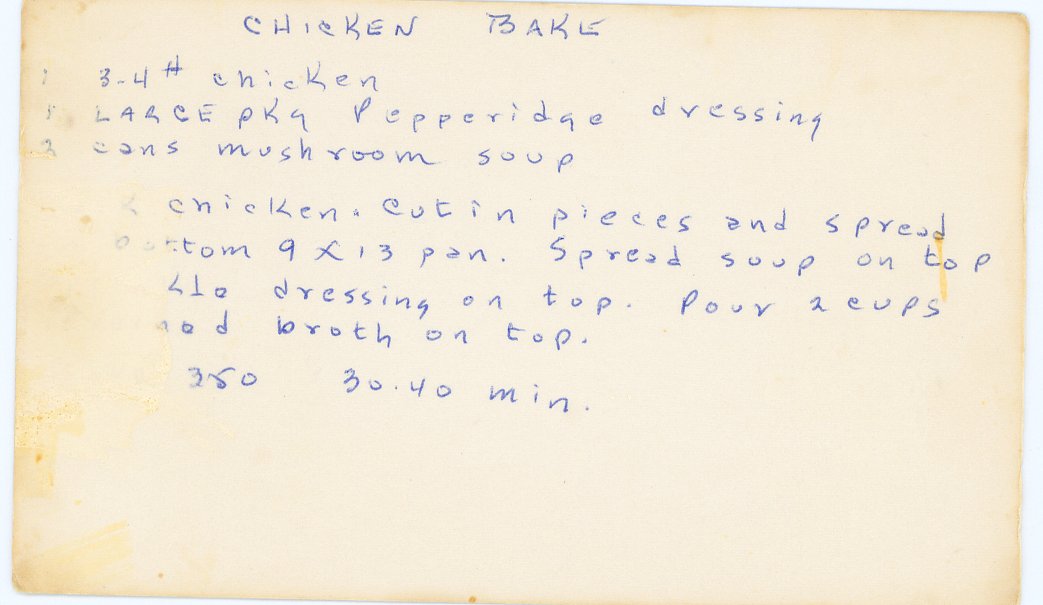 CHICKEN BAKE
1 3-4# chicken
1 LARGE pkg Pepperidge dressing
2 cans mushroom soup
chicken. Cut in pieces and spread
bottom 9 X 13 pan. Spread soup on top
dressing on top. Pour 2 cups
broth on top.
350 30-40 min.